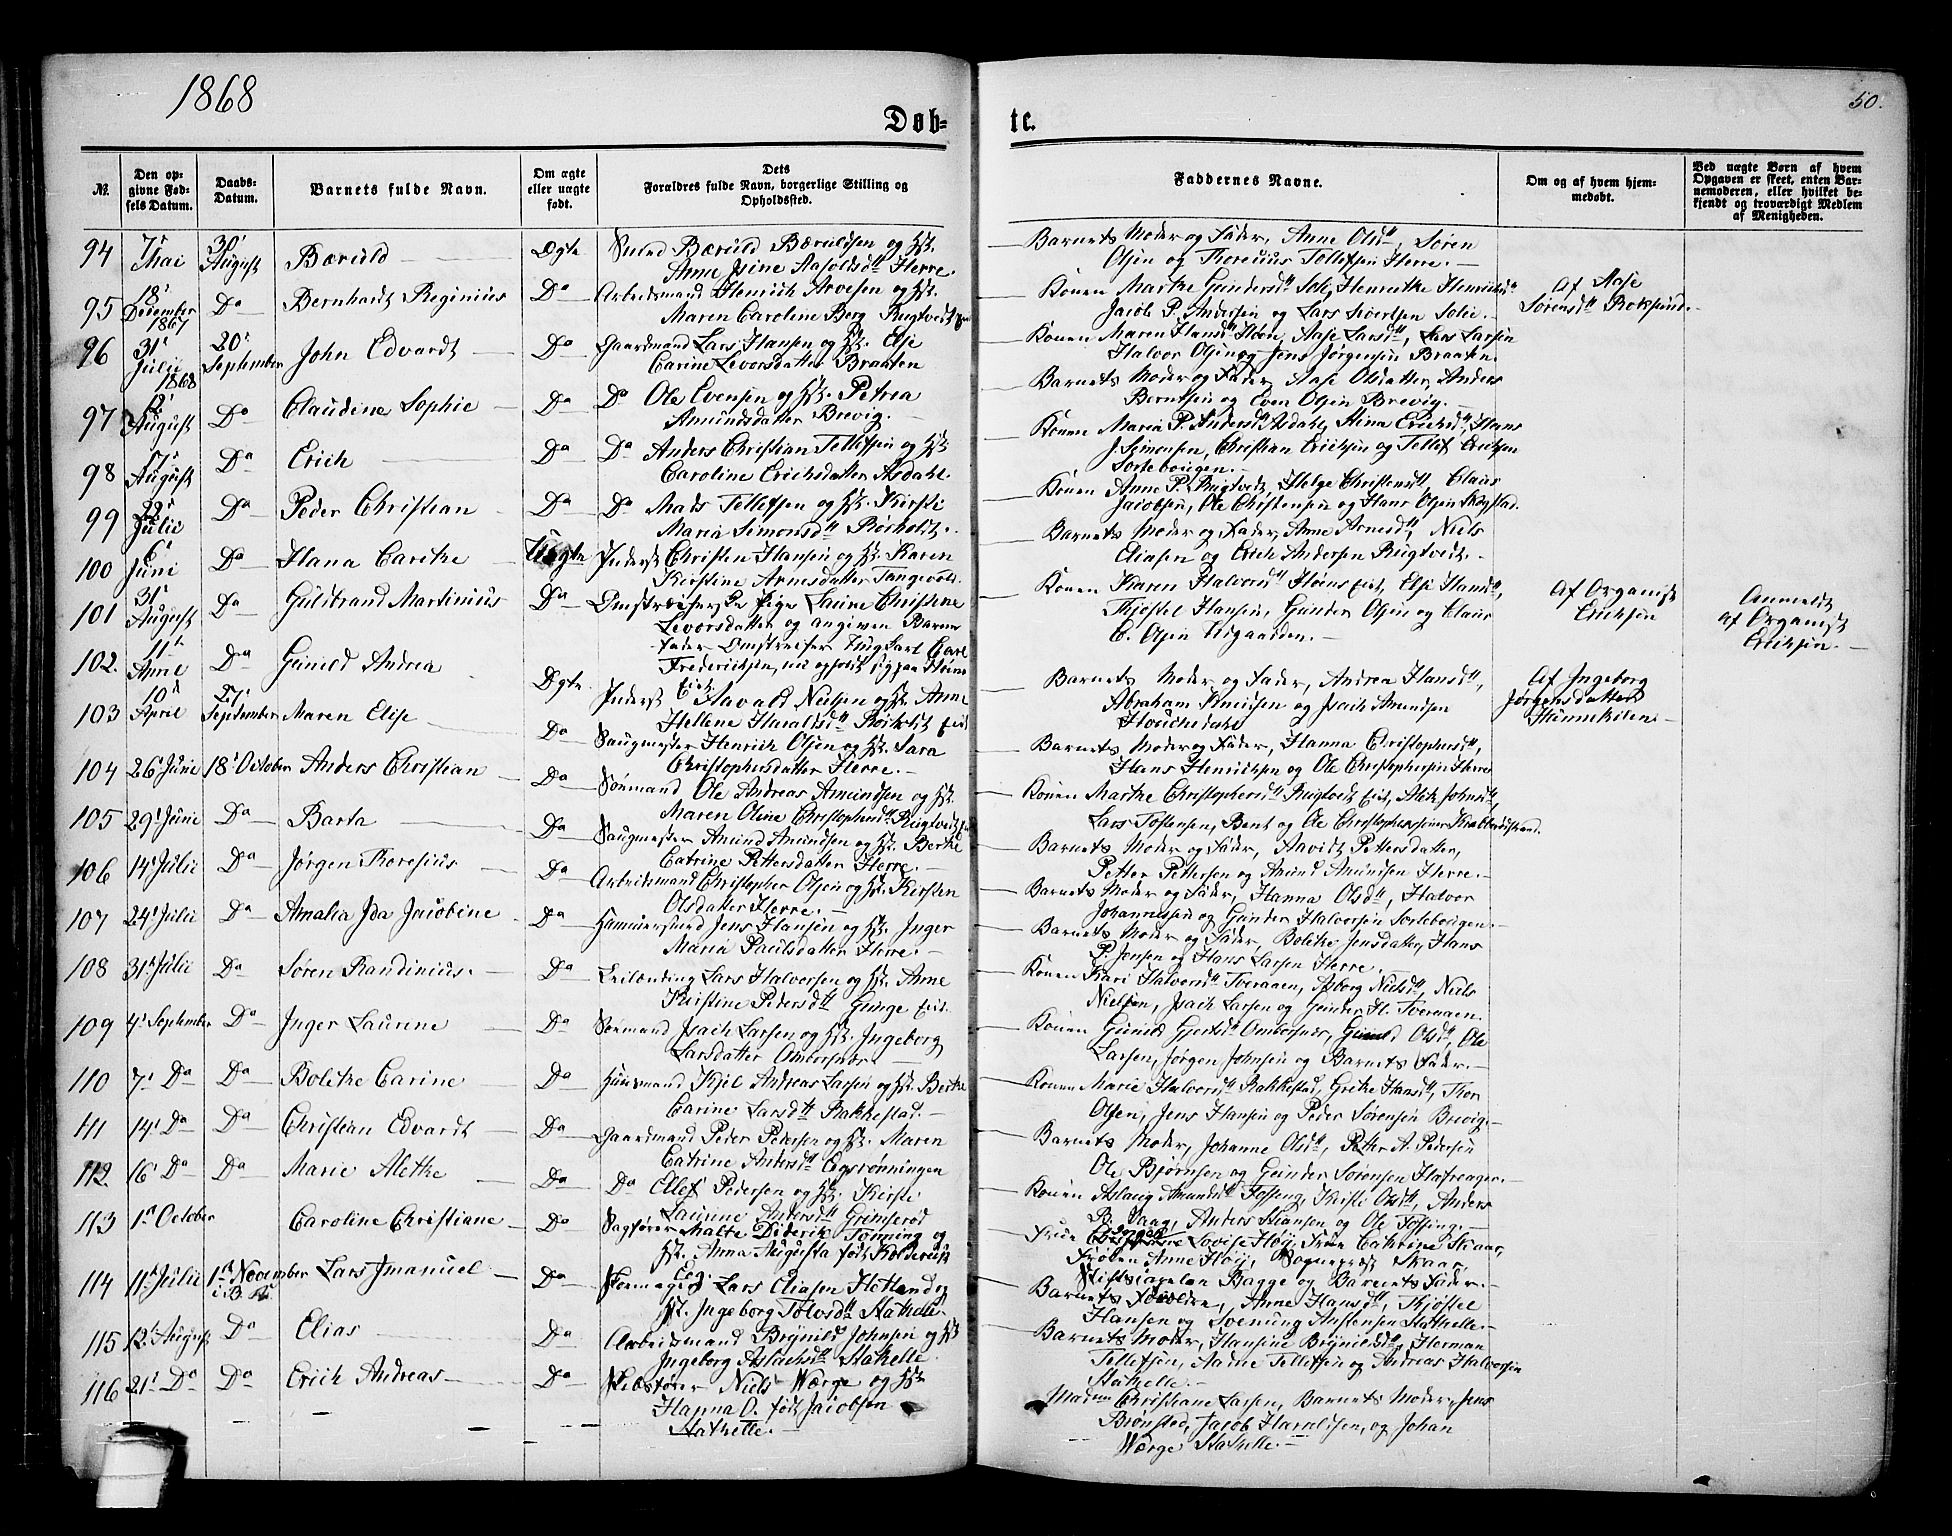 1868
50.
Døb-
te.
№.
Den op-
givne Fød-
sels Datum.
Daabs-
Datum.
Barnets fulde Navn.
Om ægte
eller uægte
født.
Dets
Forældres fulde Navn, borgerlige Stilling og
Opholdssted.
Faddernes Navne.
Om og af hvem hjem-
medøbt.
Ved uægte Børn af hvem
Opgaven er skeet, enten Bar-
nemoderen, eller hvilket be-
kjendt og troværdigt Medlem
af Menigheden.
94 7de Mai 30' August Bæruld Ægte Smed Bæruld Bæruldsen og Hst.
Anne Isine Aasoldsd. Herre.
Barnets Moder og Fader, Anne Olsd., Søren
Olsen og Thorenius Tellefsen Herre.
95 18' December 1867 Do Bernhardt Reginius Do Arbeidsmand Henrich Arvesen og Hst.
Maren Caroline Berg Rugtvedt
Konen Marthe Gundersd. Solie, Henrikke Henriksd.
Jacob P. Andersen og Lars Sivertsen Solie.
Af Aase
Sørensd. Roksund.
96 31' Julii 1868 20' September John Edvardt Do Gaardmand Lars Hansen og Hst. Else
Carine Levorsdatter Braaten
Konen Maren Hansd. Høen, Aase Larsd., Lars Larsen
Halvor Olsen og Jens Jørgensen Braaten.
97 12' August Do Claudine Sophie Do Do Ole Evensen og Hst. Petrea
Amundsdatter Brevig.
Barnets Moder og Fader, Aase Olsdatter, Anders
Berntsen og Even Olsen Brevig.
98 17' August Do Erich Do Do Anders Christian Tellefsen og Hst.
Caroline Erichsdatter Asdahl.
Konen Maria P. Andersd. Asdahl, Stina Erichsd., Hans
J. Simonsen, Christian Erichsen og Tellef Erichsen
Sortebougen.
99 22' Julii Do Peder Christian Do Do Mads Tellefsen og Hst. Kirsti
Maria Simonsd. Rørholdt.
Konen Anne P. Rugtvedt, Helge Christensd., Claus
Jacobsen, Ole Christensen og Hans Olsen Skogstad.
100 6' Juni Do Hana Carethe Inderst Christen Hansen og Hst. Karen
Kirstine Arnesdatter Tangevold.
Barnets Moder og Fader, Anne Arnesd., Niels
Eliasen og Erich Andersen Rugtvedt.
101 31' August Do Guldbrand Martinius Uægte Omstreiferske Pige Laurine Christine
Levorsdatter og angiven Barne-
fader Omstreifer Ungkarl Carl
Frederichsen, nu opholdt sig paa
Konen Karen Halvorsd. Høens Eiet, Else Hansd.,
Thjøstel Hansen, Gunder Olsen og Claus
C. Olsen Lisgaarden.
Af Organist
Erichsen
Anmeldt
af Organist
Erichsen.
102. 11te April Do Gunild Andrea Ægte Inderst Aavald Nielsen og Hst. Anne
Hellene Haraldsd. Rørholdt Eiet
Barnets Moder og Fader, Andrea Hansd.,
Abraham Knudsen og Isach Amundsen
Af Ingeborg
Jørgensdatter
103 10de April 27' September Maren Elise Do Saugmester Henrich Olsen og Hst. Sara
Christophersdatter Herre.
Barnets Moder og Fader, Hanna Christophersd.,
Hans Henrichsen og Ole Christophersen Herre
104 26' Junii 18' October Anders Christian Do Sømand Ole Andreas Amundsen og Hst.
Maren Oline Christophersd. Rugtvedt
Konen Marthe Christophersd. Rugtvedt Eiet, Aleth Johnsd.,
Lars Tostensen, Bent og Ole Christophersener Krabberødstrand.
105 29' Junii Do Barta Do Saugmester Amund Amundsen og Hst. Berthe
Catrine Pettersdatter Herre.
Barnets Moder og Fader, Aavidt Pettersdatter,
Petter Pettersen og Amund Amundsen Herre.
106 14' Julii Do Jørgen Thoresius Do Arbeidsmand Christopher Olsen og Hst. Kirsten
Olsdatter Herre.
Barnets Moder og Fader, Hanna Olsd., Halvor
Johannessen og Gunder Halvorsen Sortebougen.
107 24' Julii Do Amalia Ida Jacobine Do Hammersmed Jens Hansen og Hst. Inger
Maria Paulsdatter Herre.
Barnets Moder og Fader, Bolethe Jensdatter, Hans
P. Jensen og Hans Larsen Herre.
108 31' Julii Do Søren Randinius Do Leilænding Lars Halvorsen og Hst. Anne
Kirstine Pedersd. Grinje Eiet.
Konen Kari Halvorsd. Tveraaen, Asborg Nielsd., Niels
Nielsen, Isach Larsen og Gunder H. Tveraaen.
109 4' September Do Inger Laurine Do Sømand Isach Larsen og Hst. Ingeborg
Larsdatter Ombordsnes
Konen Gunild Gjertsd. Ombordsnes, Gunild Olsd., Ole
Larsen, Jørgen Johnsen og Barnets Fader.
110 7' Do Do Bolethe Carine Do Huusmand Kjel Andreas Larsen og Hst. Berthe
Carine Larsd. Rakkestad.
Konen Marie Halvorsd. Rakkestad, Grethe Hansd., Thor
Olsen, Jens Hansen og Peder Sørensen Brevig.
111 14' Do Do Christian Edvardt Do Gaardmand Peder Pedersen og Hst. Maren
Catrine Andersd. Eegsrønningen
Barnets Moder, Johanne Olsd., Petter A. Pedersen
Ole Bjørnsen og Gunder Sørensen Hafreager.
112. 16' Do Do Marie Alethe Do Do Ellef Pedersen og Hst. Kirstie
Laurine Andersd. Grimserød
Konen Aslaug Amundsd. Fossing, Kirsti Olsd., Anders
P. Saag, Anders Stiansen og Ole Fossing.
113 1ste October Caroline Christiane Do Sagfører Malte Diderik Tønning og
Hst. Anna Augusta født Kolderup
Frue Lovise Høy, Frue Cathrine Skaar,
Frøken Anne Høy, Sogneprest Skaar,
Stiftscapelan Bagge og Barnets Fader.
114 11' Julii 1ste November i B.K. Lars Imanuel Do Lars Eliasen Hetland og
Hst. Ingeborg Tolvsd. Stathelle.
Barnets Forældre, Anne Hansd., Thjøstel
Hansen og Svenung Anstensen Stathelle.
115 12' August Do Elias Do Arbeidsmand Brynild Johnsen og Hst.
Ingeborg Aslachsd. Stathelle.
Barnets Moder, Hansine Brynildsd., Herman
Tellefsen, Aadne Tellefsen og Andreas Halvorsen
Stathelle.
116 21' Do Do Erich Andreas Do Skibsfører Niels Wærge og Hst.
Hanna O. født Jacobsen
Stathelle.
Madm Christiane Larsen, Barnets Moder, Jens
Brønsted, Jacob Haraldsen, og Johan
Wærge Stathelle.